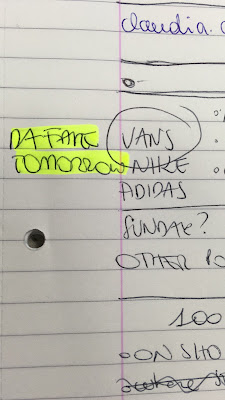 claudia.
DA FARE VANS
TOMORROW NIKE
ADIDAS
SUNDAY?
OTHER PO
100
ON SHO